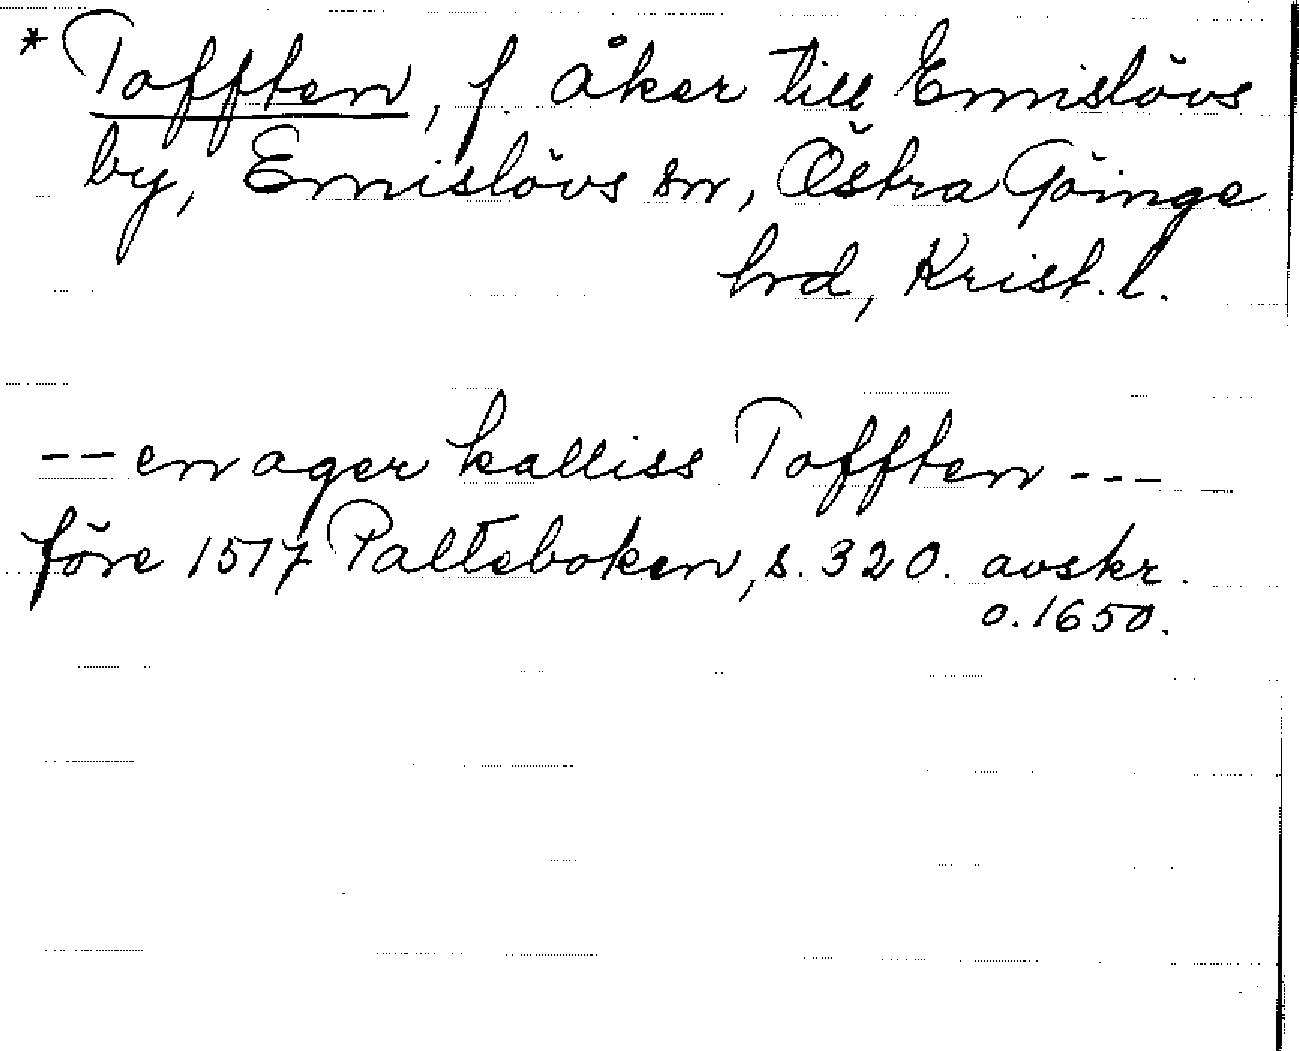 * Tofften, f. åker till Emislövs
by, Emislövs sn, Östra Göinge
hrd, Krist. l.
-- en ager kalliss Tofften ---
före 1517 Palteboken, s. 320. avskr.
o. 1650.